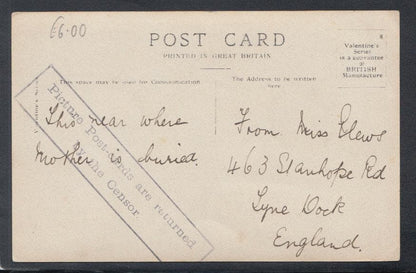 £6.00
POST CARD
PRINTED IN GREAT BRITAIN
Valentine's
Series
is a guarantee
of
BRITISH
Manufacture
This space may be used for Communication
The Address to be written
here
Picture Post-cards are returned
by the Censor
This near where
Mother is buried.
From Miss Clews
463 Stanhope Rd
Tyne Dock
England.